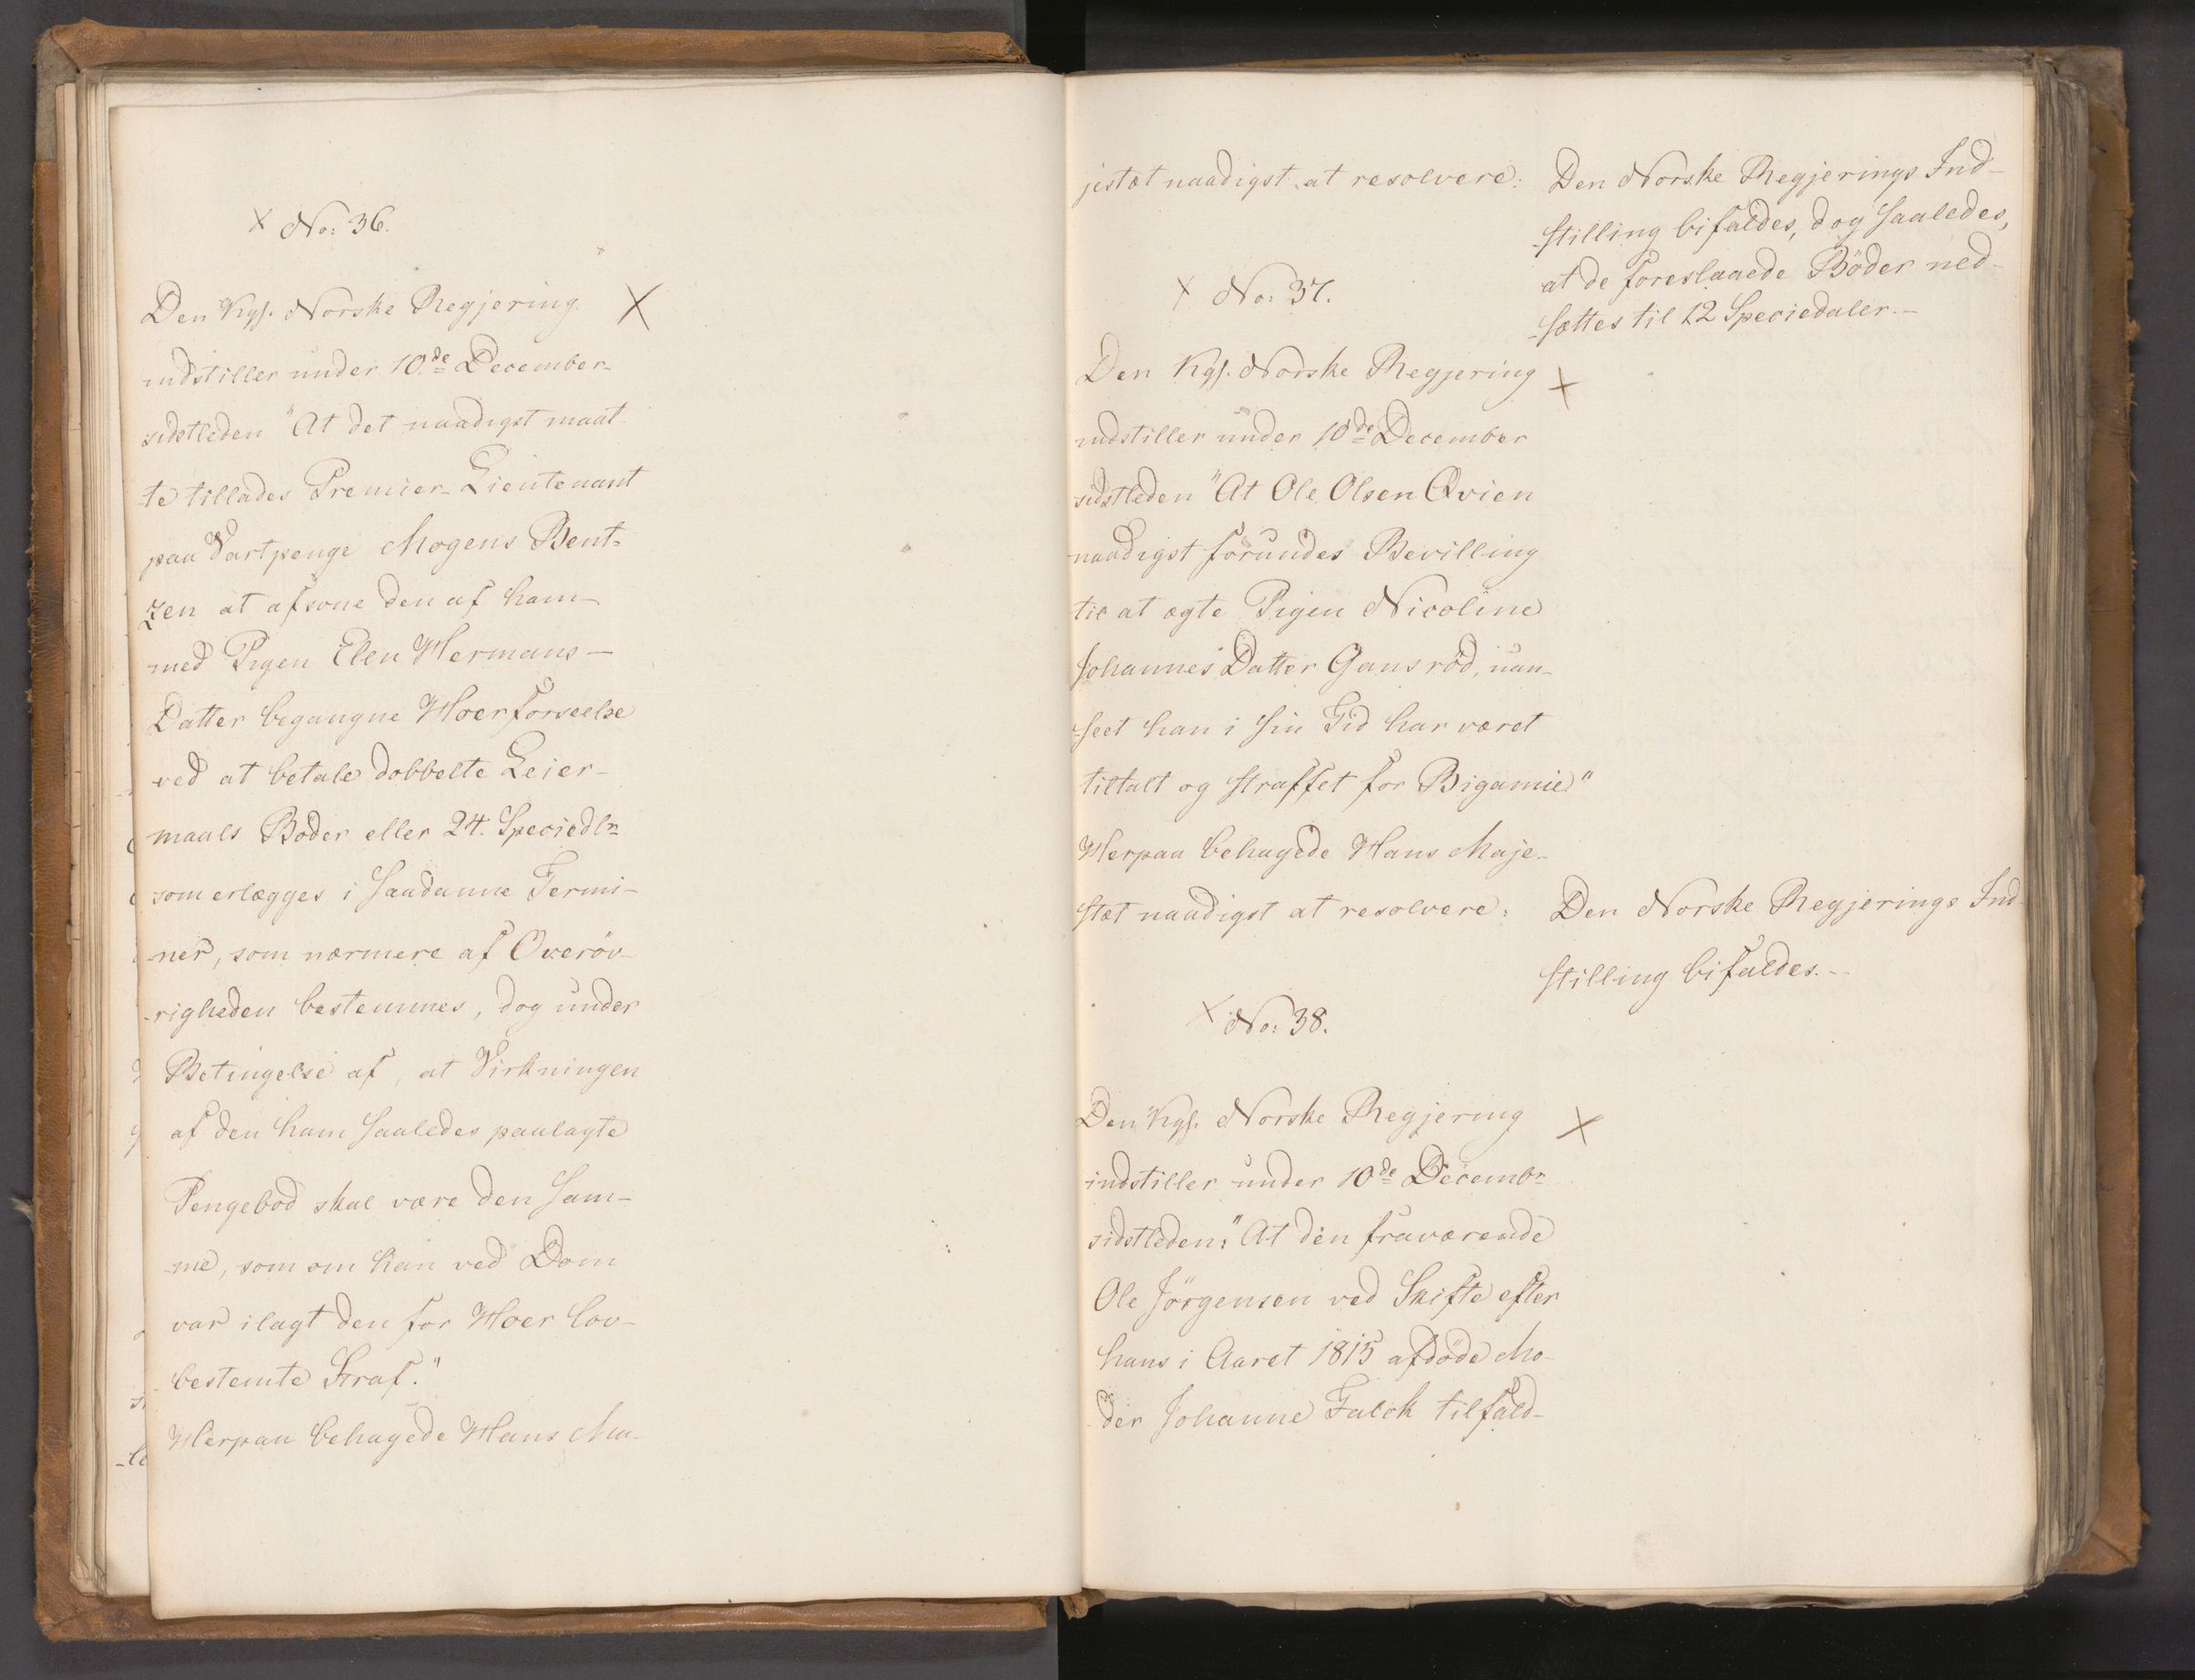 No: 36.
Den Kgl. Norske Regjering
indstiller under 10de December
sidstleden "At det naadigst maat
te tillades Premier-Lieutenant
paa Vartpenge Mogens Bent-
zen at afsone den af ham
med Pigen Elen Hermans-
Datter begangne Hoerforseelse
ved at betale dobbelte Leier-
maals Bøder eller 24. Speciedlr
som erlægges i saadanne Termi-
ner, som nærmere af Overöv-
righeden bestemmes, dog under
Betingelse af, at Virkningen
af den ham saaledes paalagte
Pengebod skal være den sam-
me, som om han ved Dom
var ilagt den for Hoer lov-
bestemte Straf."
Herpaa behagede Hans Ma-
jestæt naadigst at resolvere:
Den Norske Regjerings Ind-
stilling bifaldes, dog saaledes,
at de foreslaaede Böder ned-
sættes til 12 Speciedaler.-
No: 37.
Den Kgl. Norske Regjering
indstiller under 10de December
sidstleden "At Ole Olsen Qvien
naadigst forundes Bevilling
til at ægte Pigen Nicoline
Johannes Datter Gansröd, uan-
seet han i sin Tid har været
tiltalt og straffet for Bigamie"
Herpaa behagede Hans Maje-
stæt naadigst at resolvere:
Den Norske Regjerings Ind-
stilling bifaldes.-
No: 38.
Den Kgl. Norske Regjering
indstiller under 10de Decembr
sidstleden: "At den fraværende
Ole Jörgensen ved Skifte efter
hans i Aaret 1815 afdöde Mo-
der Johanne Falck tilfald-